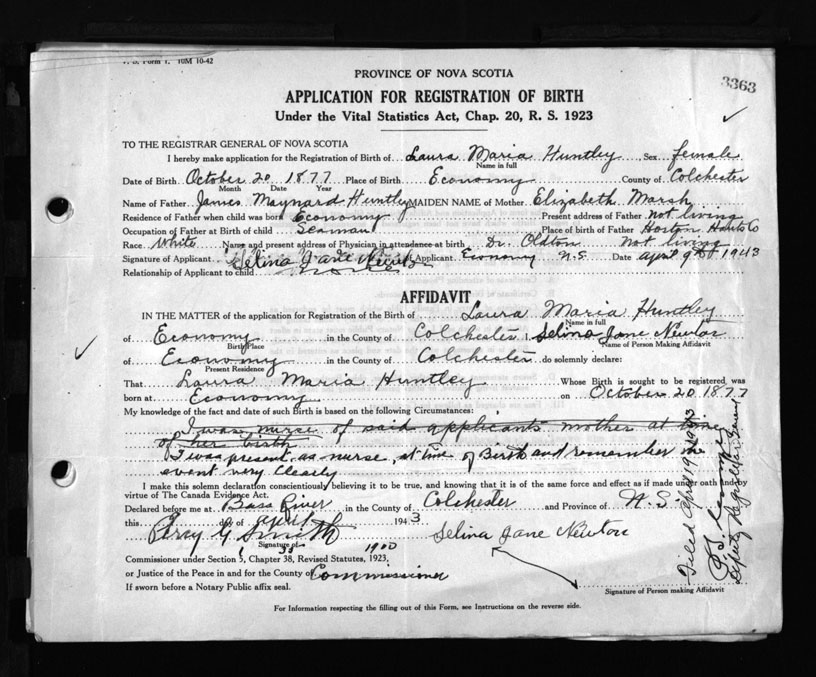 Form 1. 10M 10-42
3363
PROVINCE OF NOVA SCOTIA
APPLICATION FOR REGISTRATION OF BIRTH
Under the Vital Statistics Act, Chap. 20, R. S. 1923
TO THE REGISTRAR GENERAL OF NOVA SCOTIA
I hereby make application for the Registration of Birth of Laura Maria Huntley, Sex female
Name in full
Date of Birth October 20 1877 Place of Birth Economy County of Colchester
Month Date Year
Name of Father James Maynard Huntley MAIDEN NAME of Mother Elizabeth Marsh
Residence of Father when child was born Economy Present address of Father not living
Occupation of Father at Birth of child Seaman Place of birth of Father Horton Hants Co
Race White Name and present address of Physician in attendance at birth Dr. Oldton Not living
Signature of Applicant Selina Jane Applicant Economy N.S. Date April 1943
Relationship of Applicant to child
AFFIDAVIT
IN THE MATTER of the application for Registration of the Birth of Laura Maria Huntley
Name in full
of Economy in the County of Colchester I, Selina Jane Newton
Birth Place Name of Person Making Affidavit
of Economy in the County of Colchester do solemnly declare:
Present Residence
That Laura Maria Huntley Whose Birth is sought to be registered, was
born at Economy on October 20 1877
My knowledge of the fact and date of such Birth is based on the following Circumstances:
I was nurse of said applicants mother at time
of her birth
I was present, as nurse, at time of Birth and remember the
event very Clearly
I make this solemn declaration conscientiously believing it to be true, and knowing that it is of the same force and effect as if made under oath and by
virtue of The Canada Evidence Act.
Declared before me at Bass River in the County of Colchester and Province of N.S.
this day of April 1943
Percy G. Smith Selina Jane Newton
Signature of
1 35 1900
Commissioner under Section 5, Chapter 38, Revised Statutes, 1923,
or Justice of the Peace in and for the County of Commissioner
If sworn before a Notary Public affix seal.
Signature of Person making Affidavit
For Information respecting the filling out of this Form, see Instructions on the reverse side.
Filed April 19 1943
Deputy Registrar General